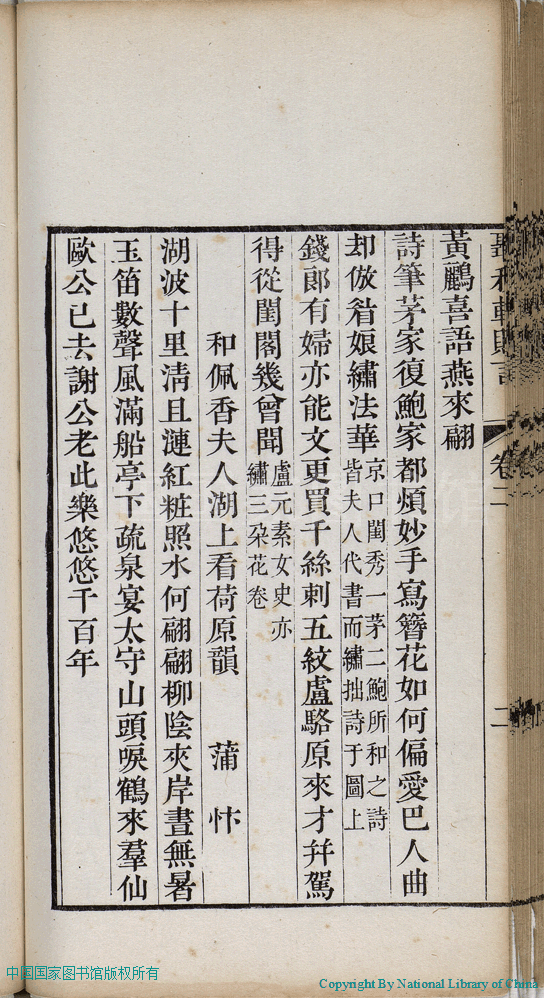 聽秋軒贈言 卷二 二
黃鸝喜語燕來翩
詩筆茅家復鮑家都煩妙手寫簪花如何偏愛巴人曲
却倣眉娘繡法華京口閨秀一茅二鮑所和之詩
皆夫人代書而繡拙詩于圖上
錢郎有婦亦能文更買千絲刺五紋盧駱原來才并駕
得從閨閣幾曾聞盧元素女史亦
繡三朶花卷
和佩香夫人湖上看荷原韻 蒲忭
湖波十里淸且漣紅粧照水何翩翩柳陰夾岸晝無暑
玉笛數聲風滿船亭下疏泉宴太守山頭唳鶴來羣仙
歐公已去謝公老此樂悠悠千百年
中国国家图书馆版权所有
Copyright By National Library of China